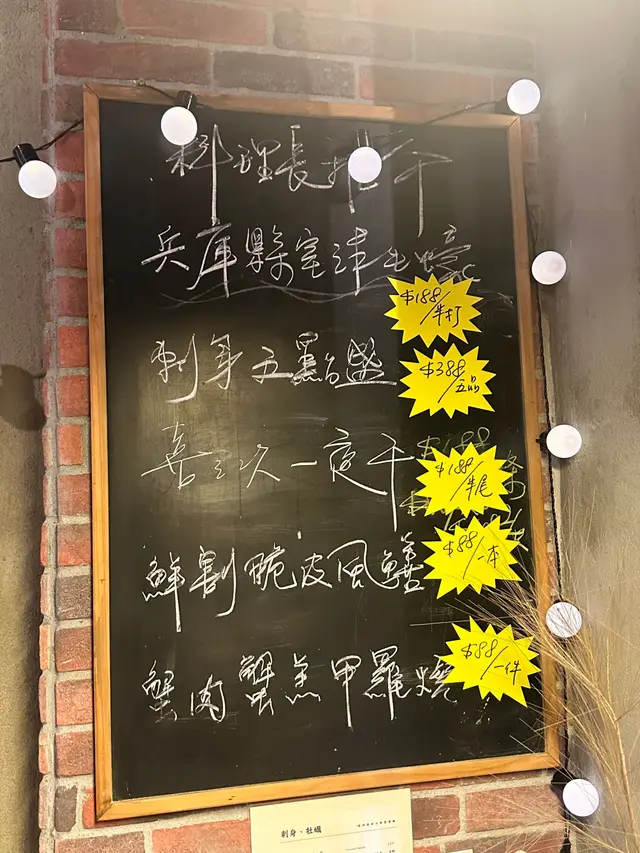 料理長推介
兵庫縣室津生蠔
$188/半打
刺身五點盛
$388/五品
喜之次一夜干
$188/半尾
鮮割脆皮風鱔
$88/一本
蟹肉蟹羔甲羅燒
$88/一件
刺身、牡蠣